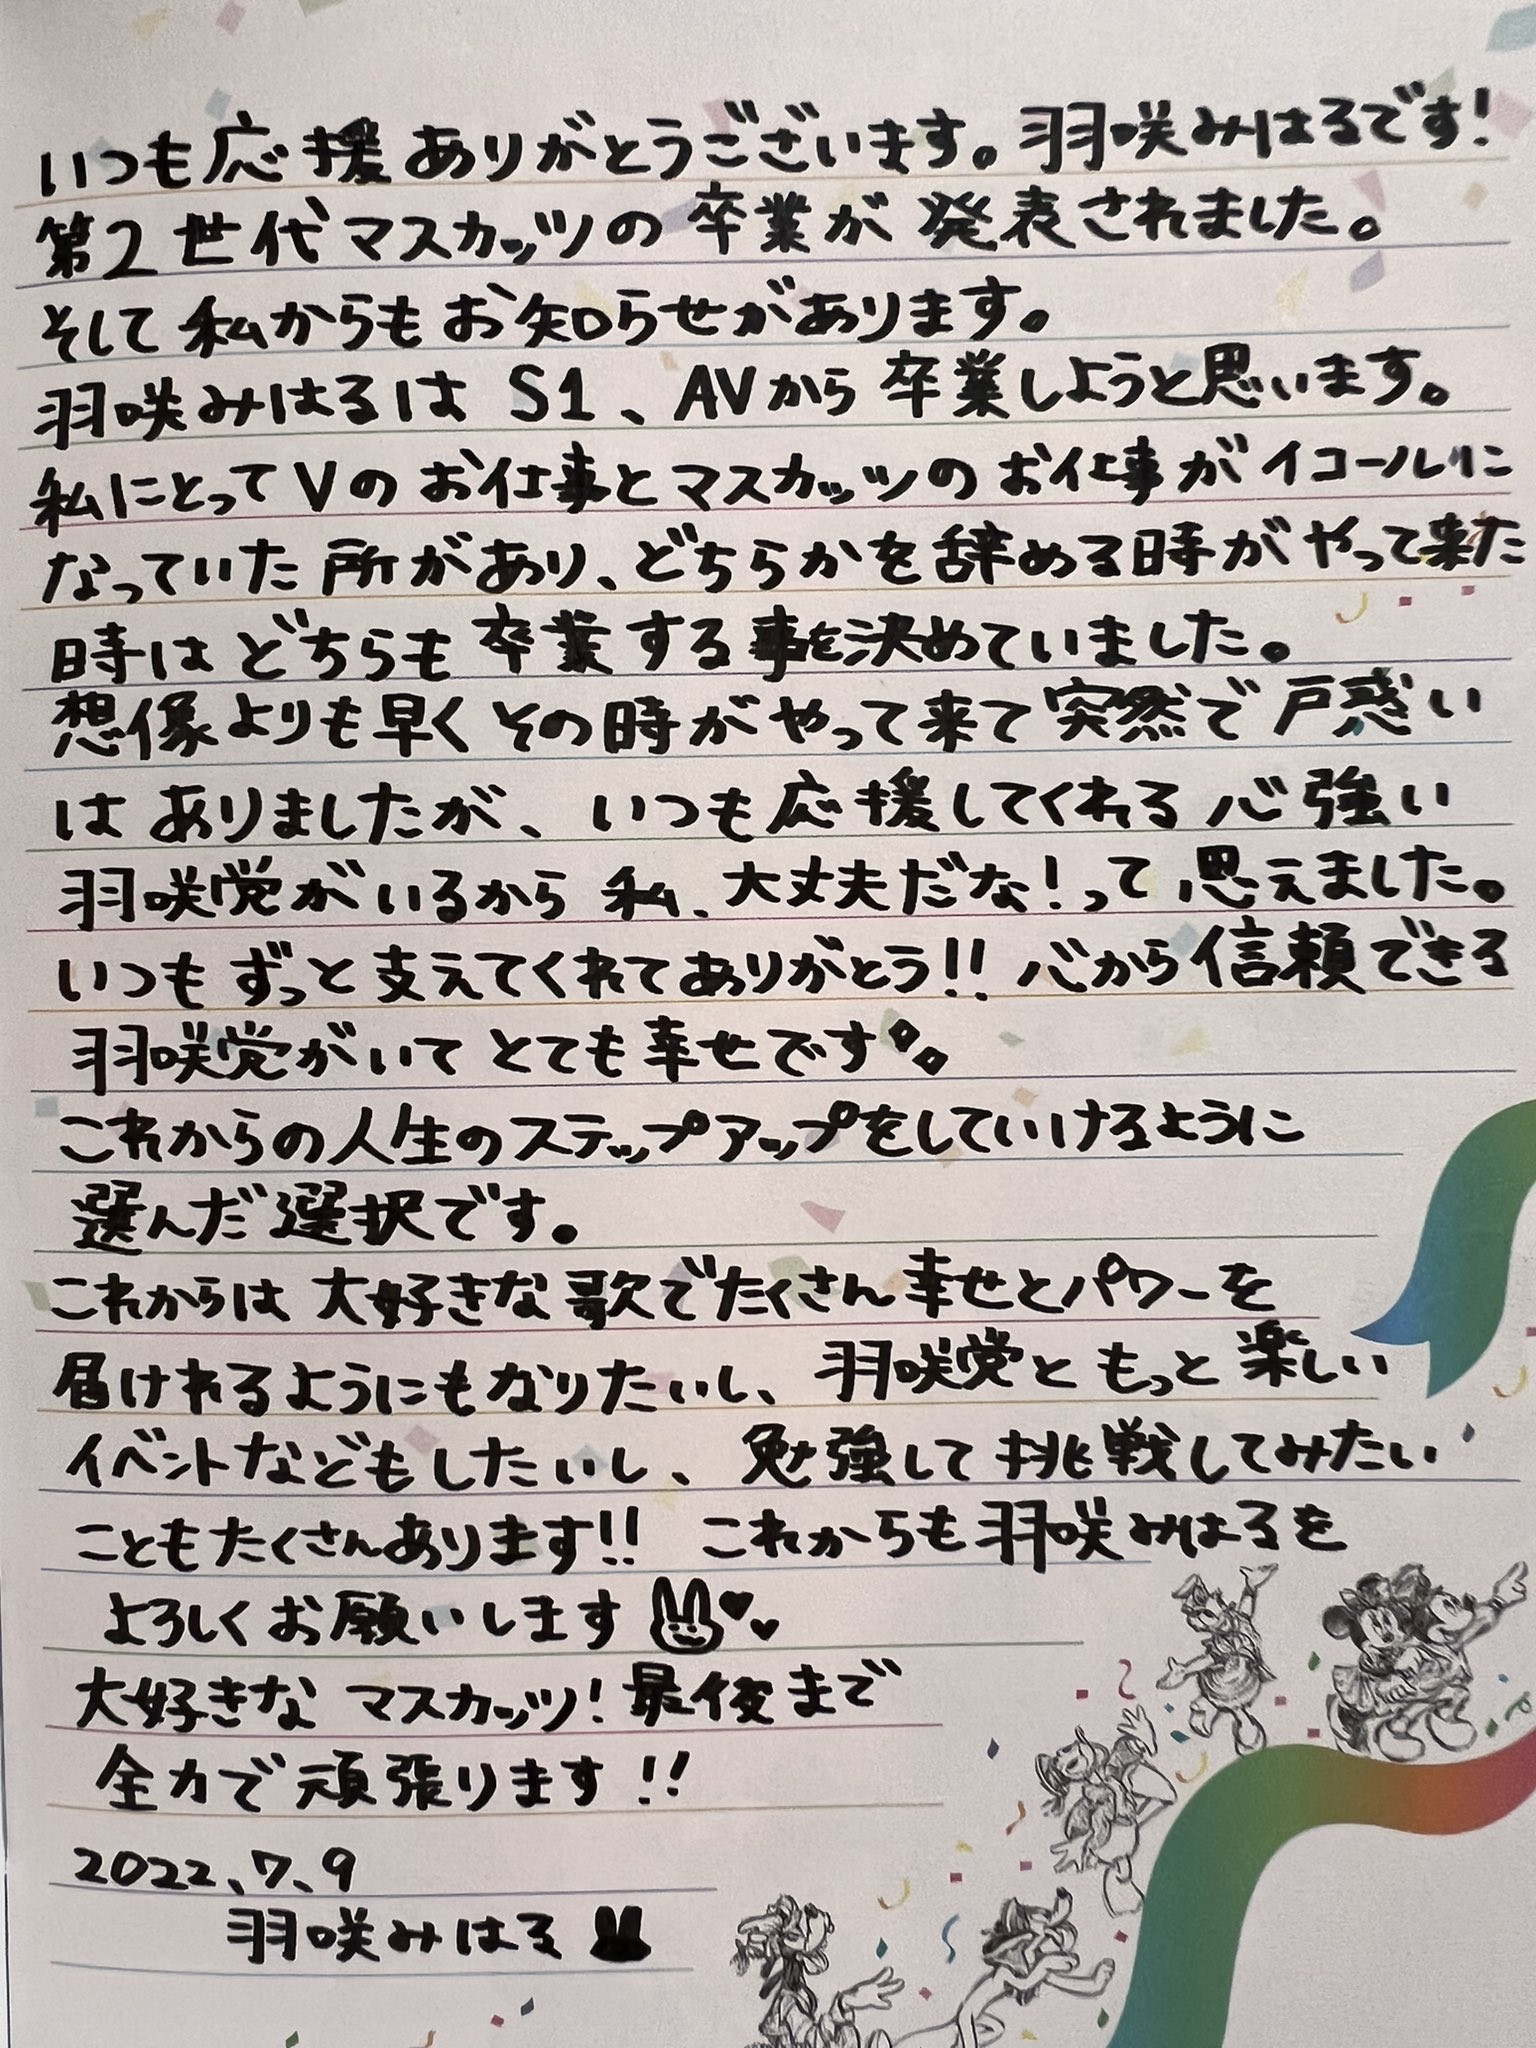 いつも応援ありがとうございます。羽咲みはるです!
第2世代マスカッツの卒業が発表されました。
そして私からもお知らせがあります。
羽咲みはるは S1、AVから卒業しようと思います。
私にとってVのお仕事とマスカッツのお仕事がイコールに
なっていた所があり、どちらかを辞める時がやって来た
時はどちらも卒業する事を決めていました。
想像よりも早くその時がやって来て突然で戸惑い
はありましたが、いつも応援してくれる心強い
羽咲党がいるから私、大丈夫だな!って思えました。
いつもずっと支えてくれてありがとう!!心から信頼できる
羽咲党がいてとても幸せです
これからの人生のステップアップをしていけるように
選んだ選択です。
これからは大好きな歌でたくさん幸せとパワーを
届けれるようにもなりたいし、羽咲党ともっと楽しい
イベントなどもしたいし、勉強して挑戦してみたい
こともたくさんあります!!これからも羽咲みはるを
よろしくお願いします
大好きなマスカッツ!最後まで
全力で頑張ります!!
2022、7、9
羽咲みはる